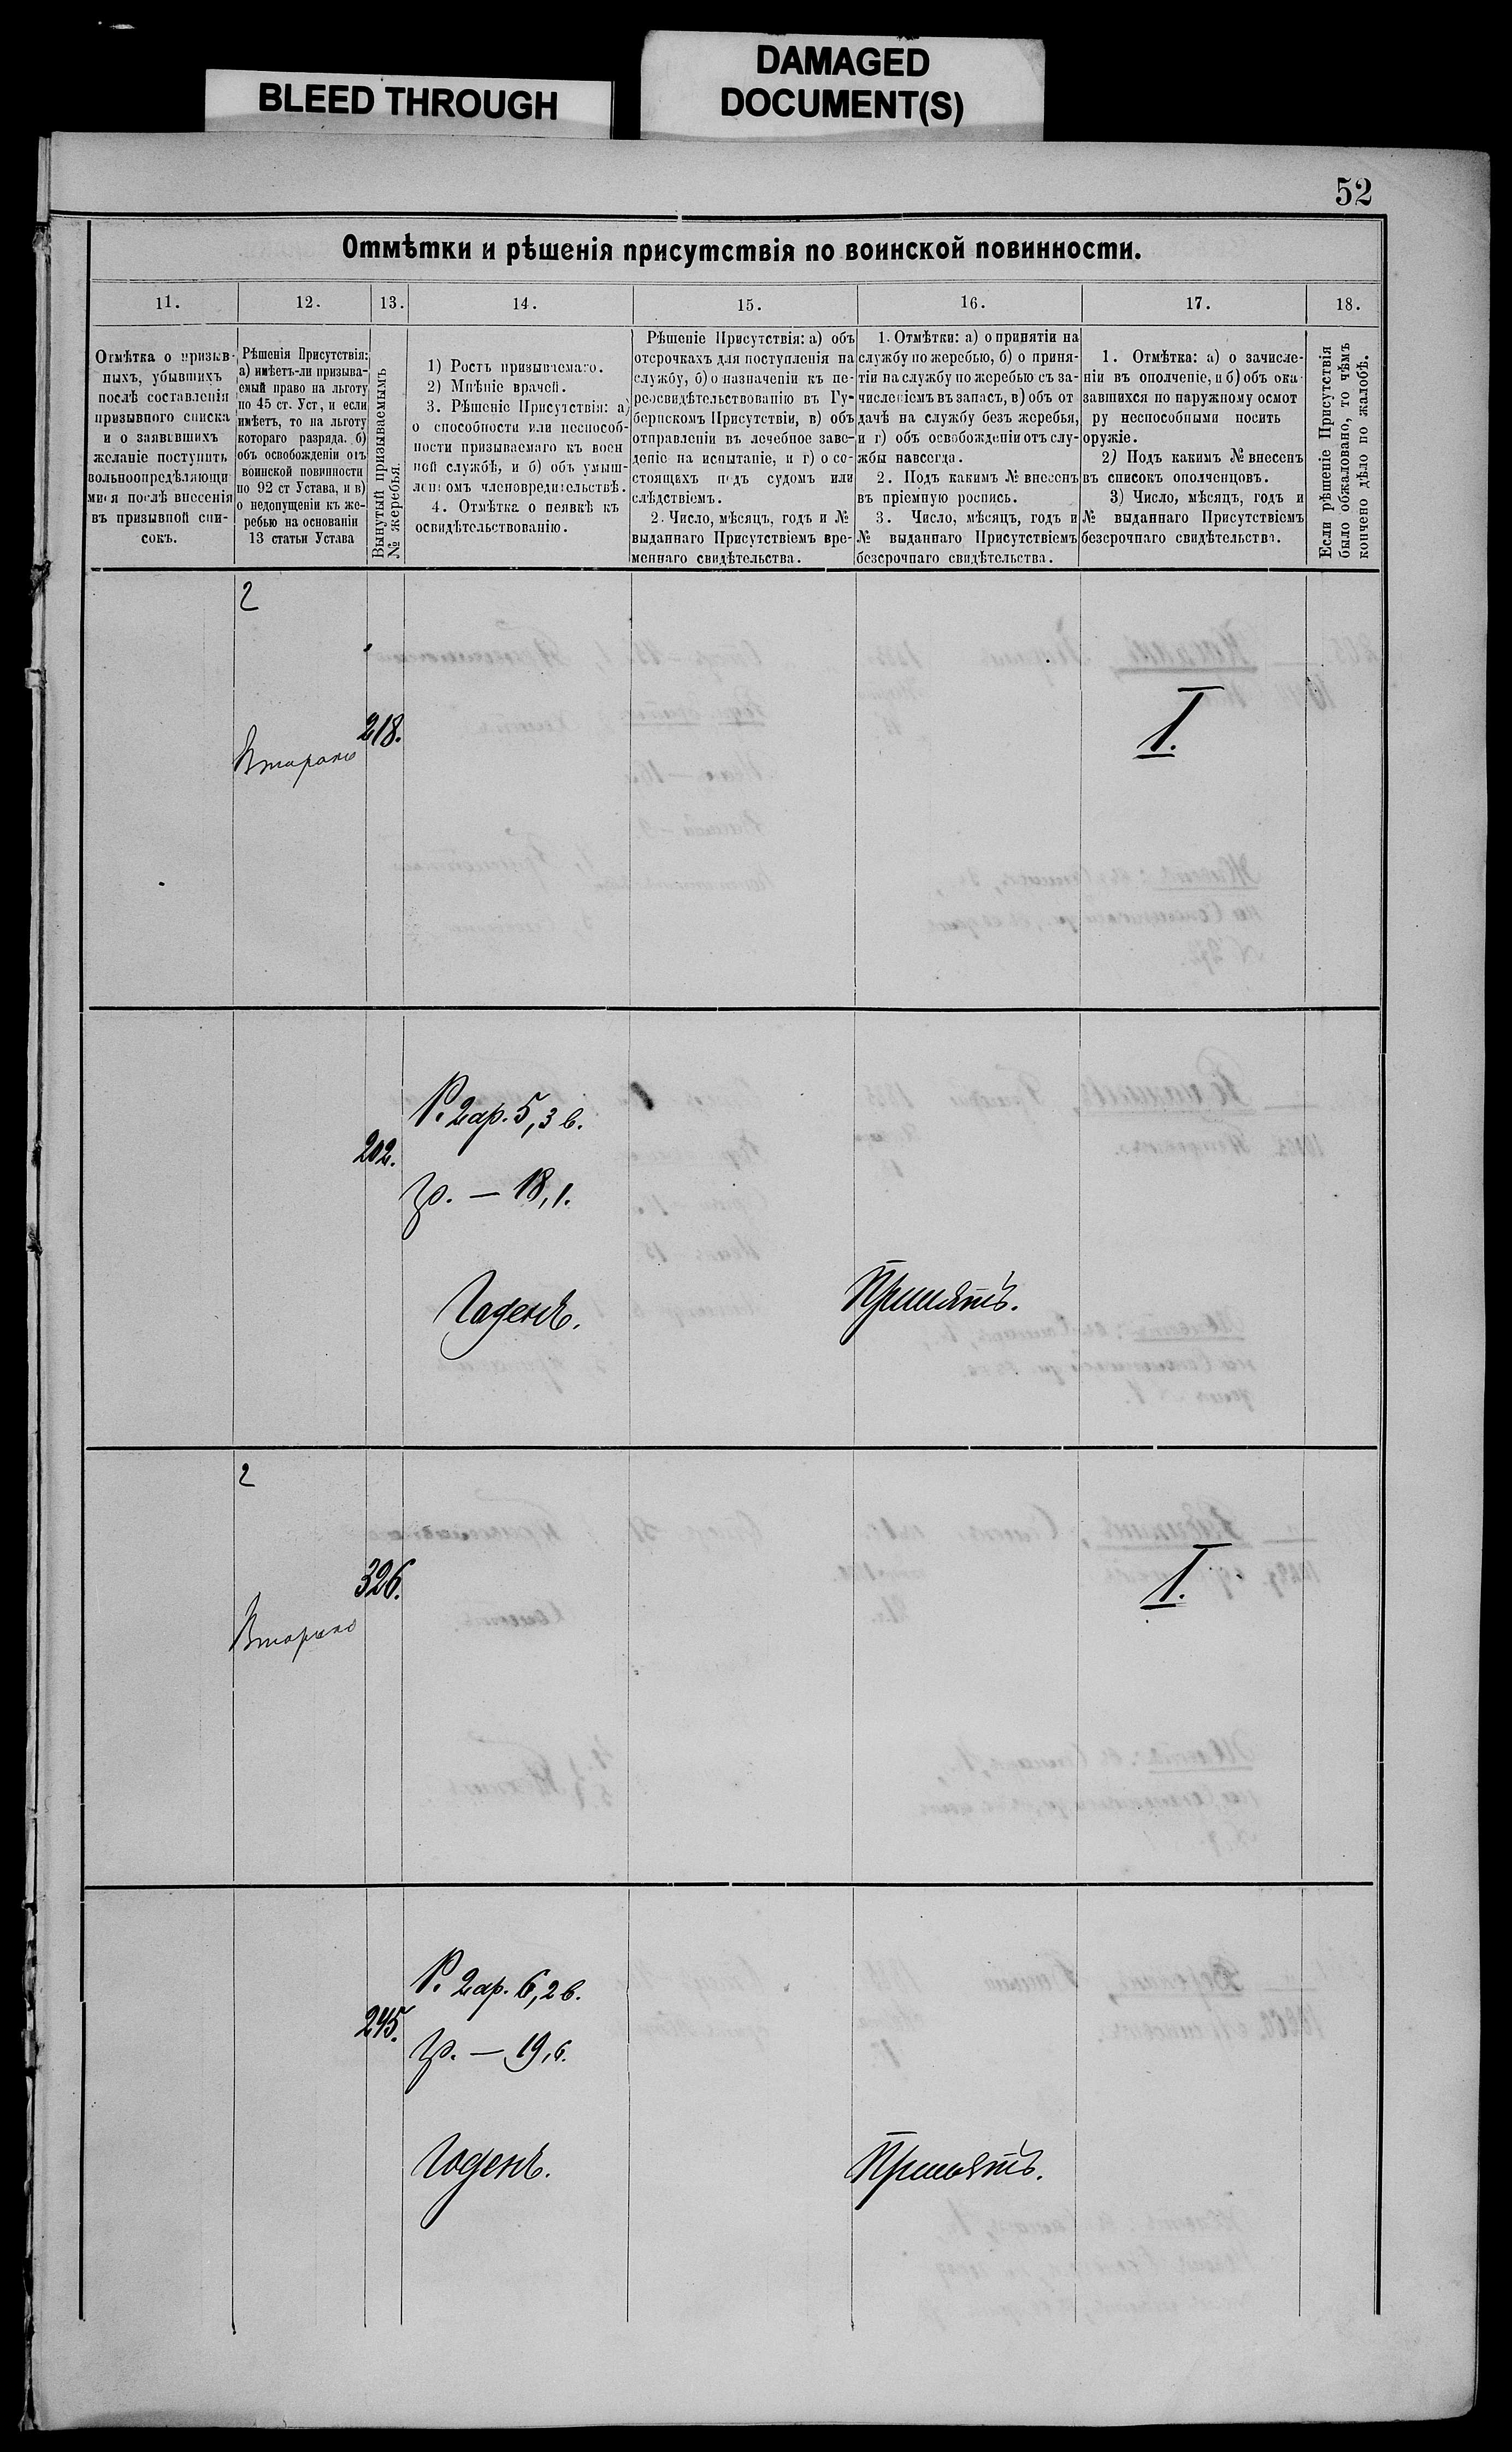 BLEED THROUGH
DAMAGED
DOCUMENT(S)
52
Отмѣтки и рѣшенія присутствія по воинской повинности.
11.
12.
13.
14.
15.
16.
17.
18.
Отмѣтка о призыв-
ныхъ, убывшихъ
послѣ составленія
призывного списка
и о заявившихъ
желаніе поступить
вольноопредѣляющи
мися послѣ внесенія
въ призывной спи-
сокъ.
Рѣшенія Присутствія:
а) имѣетъ-ли призыва-
емый право на льготу
по 45 ст. Уст, и если
имѣетъ, то на льготу
котораго разряда. б)
объ освобожденіи отъ
воинской повинности
по 92 ст Устава, и в)
о недопущеніи къ же-
ребью на основаніи
13 статьи Устава
Вынутый призываемымъ
№ жеребья.
1) Ростъ призываемаго.
2) Мнѣніе врачей.
3. Рѣшеніе Присутствія: а)
о способности или неспособ-
ности призываемаго къ воен
ной службѣ, и б) объ умыш-
ленномъ членовредительствѣ.
4. Отмѣтка о неявкѣ къ
освидѣтельствованію.
Рѣшеніе Присутствія: а) объ
отсрочкахъ для поступленія на
службу, б) о назначеніи къ пе-
реосвидѣтельствованію въ Гу-
бернскомъ Присутствіи, в) объ
отправленіи въ лечебное заве-
деніе на испытаніе, и г) о со-
стоящихъ подъ судомъ или
слѣдствіемъ.
2. Число, мѣсяцъ, годъ и №
выданнаго Присутствіемъ вре-
меннаго свидѣтельства.
1. Отмѣтки: а) о принятіи на
службу по жеребью, б) о приня-
тіи на службу по жеребью съ за-
численіемъ въ запасъ, в) объ от
дачѣ на службу безъ жеребья,
и г) объ освобожденіи отъ слу-
жбы навсегда.
2. Подъ какимъ № внесенъ
въ пріемную роспись.
3. Число, мѣсяцъ, годъ и
№ выданнаго Присутствіемъ
безсрочнаго свидѣтельства.
1. Отмѣтка: а) о зачисле-
ніи въ ополченіе, и б) объ ока-
завшихся по наружному осмот
ру неспособными носить
оружіе.
2) Подъ какимъ № внесенъ
въ списокъ ополченцовъ.
3) Число, мѣсяцъ, годъ и
№ выданнаго Присутствіемъ
безсрочнаго свидѣтельства.
Если рѣшеніе Присутствія
было обжаловано, то чѣмъ
кончено дѣло по жалобѣ.
2
218.
I.
Р. 2 ар. 5, 3 в.
202.
гр. — 18, 1.
Годенъ.
Принятъ.
2
326.
I.
Р. 2 ар. 6, 2 в.
245.
гр. — 19, 6.
Годенъ.
Принятъ.